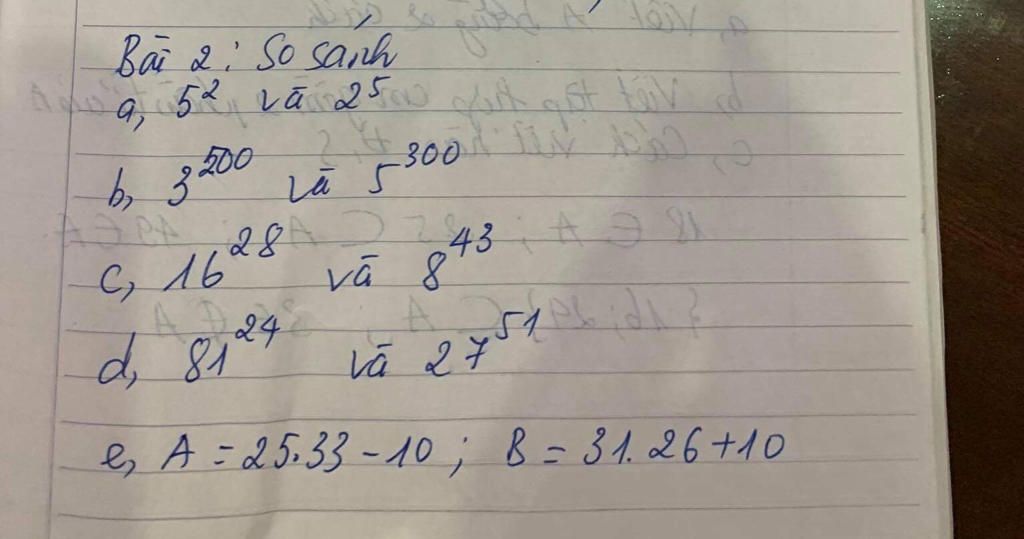 Bài 2: So sánh
a, 5² và 2⁵
b, 3⁵⁰⁰ và 5³⁰⁰
c, 16²⁸ và 8⁴³
d, 81²⁴ và 27⁵¹
e, A = 25.33 - 10 ; B = 31.26 + 10